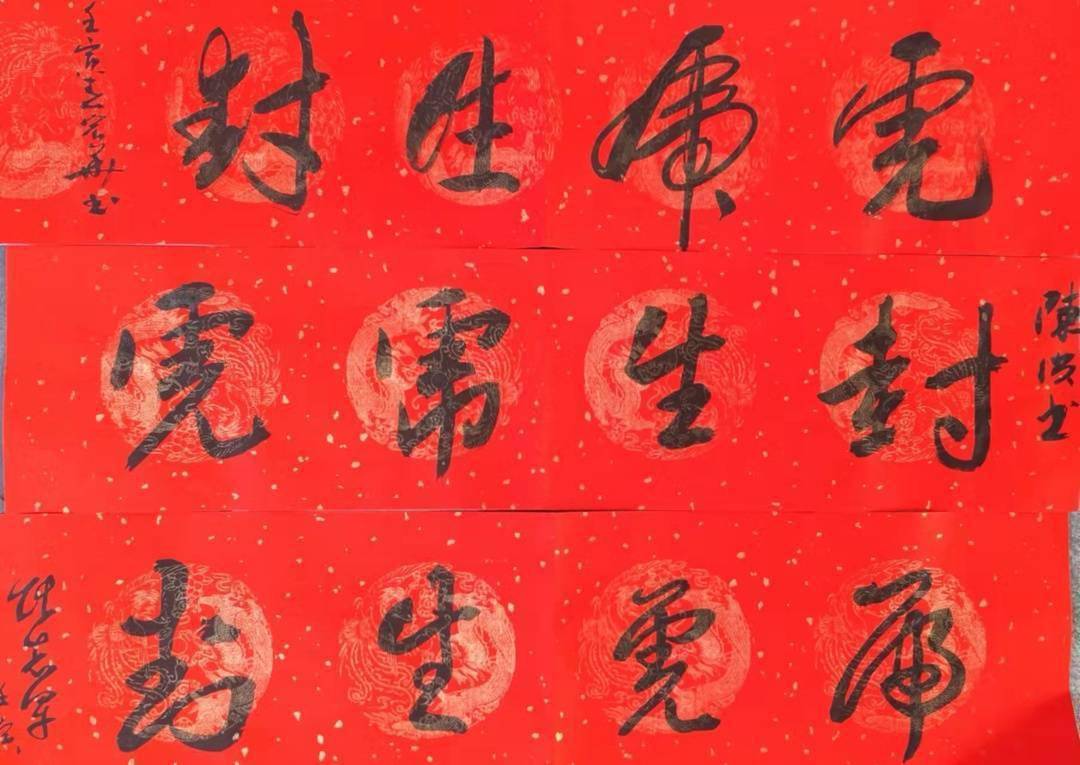 虎虎生封
壬寅 书
虎虎生封
陳俊书
虎虎生封
志军